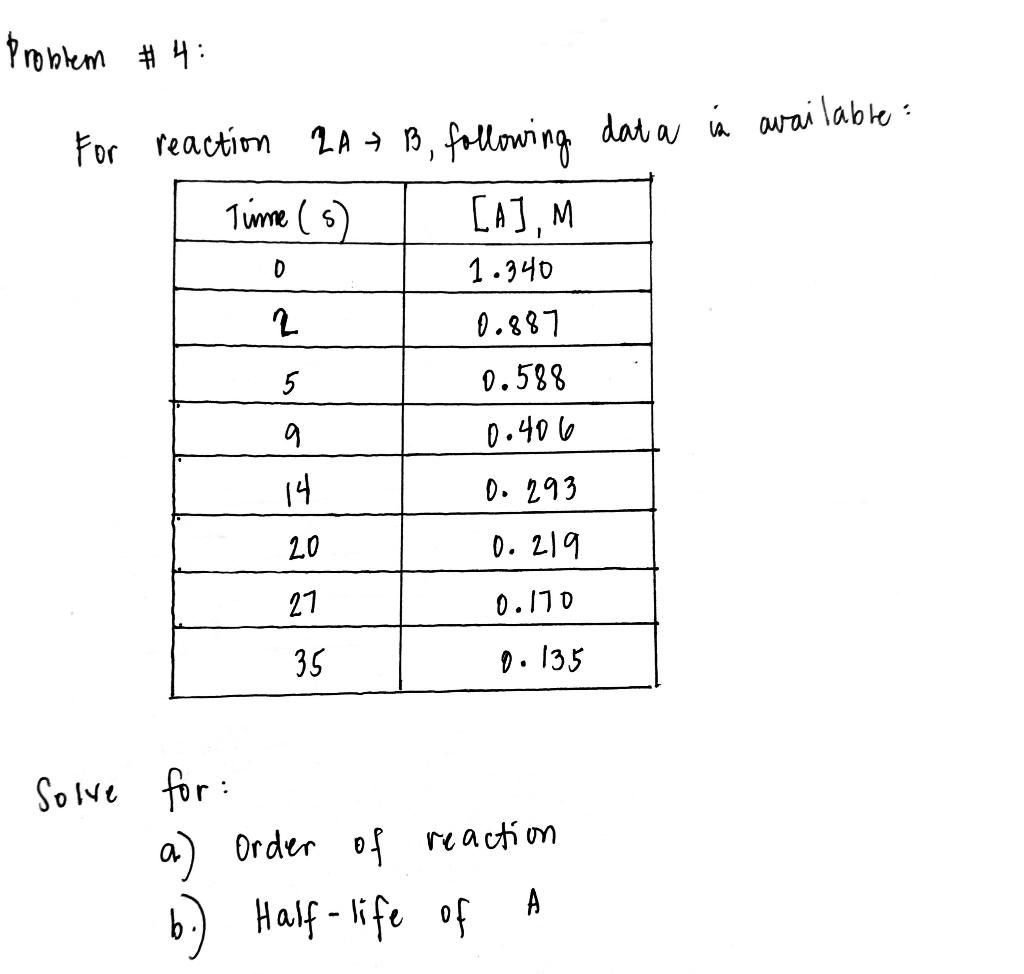 Problem # 4:
For reaction 2A → B, following data is available:
Time (s) [A], M
0 1.340
2 0.887
5 0.588
9 0.406
14 0.293
20 0.219
27 0.170
35 0.135
Solve for:
a) Order of reaction
b.) Half-life of A